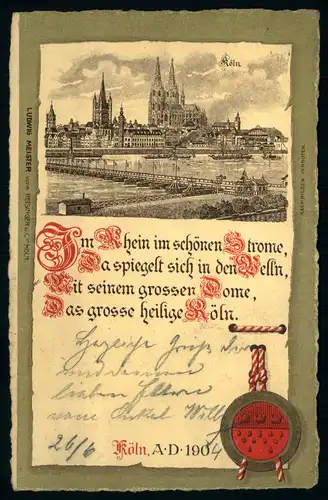 Köln.
LUDWIG MEISTER
NACHBILDEN VERBOTEN.
Im Rhein im schönen Strome,
Da spiegelt sich in den Welln,
Mit seinem grossen Dome,
Das grosse heilige Köln.
Herzliche Grüße
lieben Eltern
vom Onkel Willy
26/6
Köln, A·D·1904